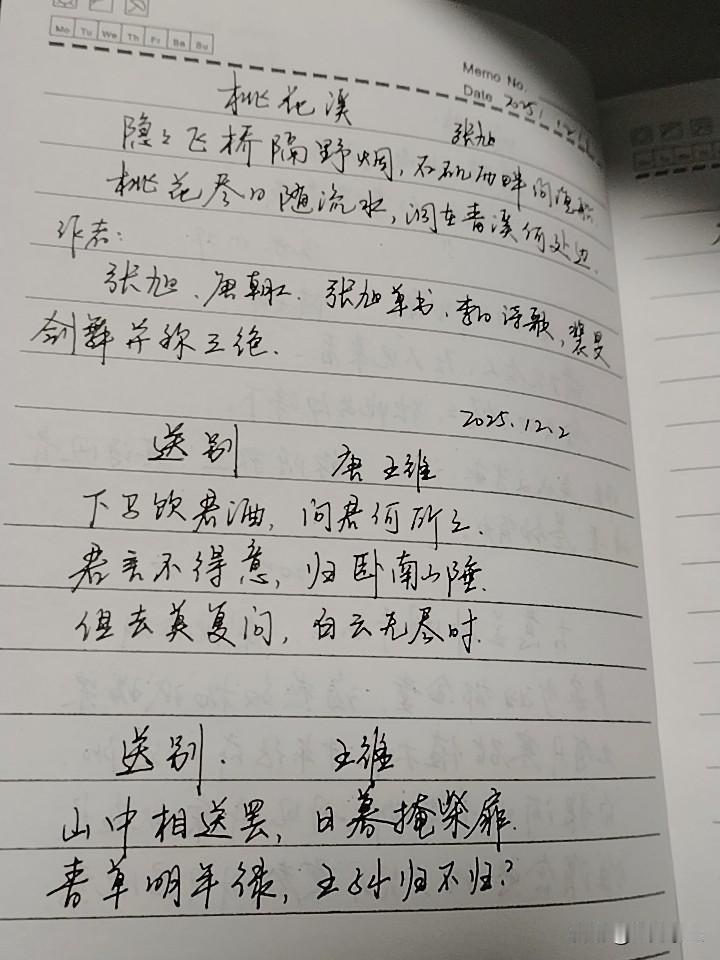 Mo Tu We Th Fr Sa Su
Memo No.
Date 2025.12.
桃花溪
张旭
隐々飞桥隔野烟,石矶西畔问渔船
桃花尽日随流水,洞在青溪何处边.
作者:
张旭、唐朝 张旭草书、李白诗歌,裴旻
剑舞并称三绝.
2025.12.2
送别 唐 王维
下马饮君酒,问君何所之.
君言不得意,归卧南山陲.
但去莫复问,白云无尽时.
送别. 王维
山中相送罢,日暮掩柴扉.
青草明年绿,王孙归不归?